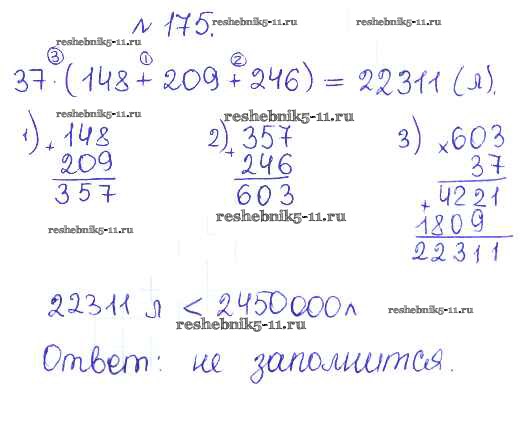 № 175.
reshebnik5-11.ru
reshebnik5-11.ru
③ ① ②
37 · (148 + 209 + 246) = 22311 (л).
reshebnik5-11.ru
reshebnik5-11.ru
1) + 148 2) + 357 3) × 603
209 246 37
357 603 + 4221
reshebnik5-11.ru
1809
reshebnik5-11.ru
22311
22311 л < 2450000 л
reshebnik5-11.ru
reshebnik5-11.ru
Ответ: не заполнится.